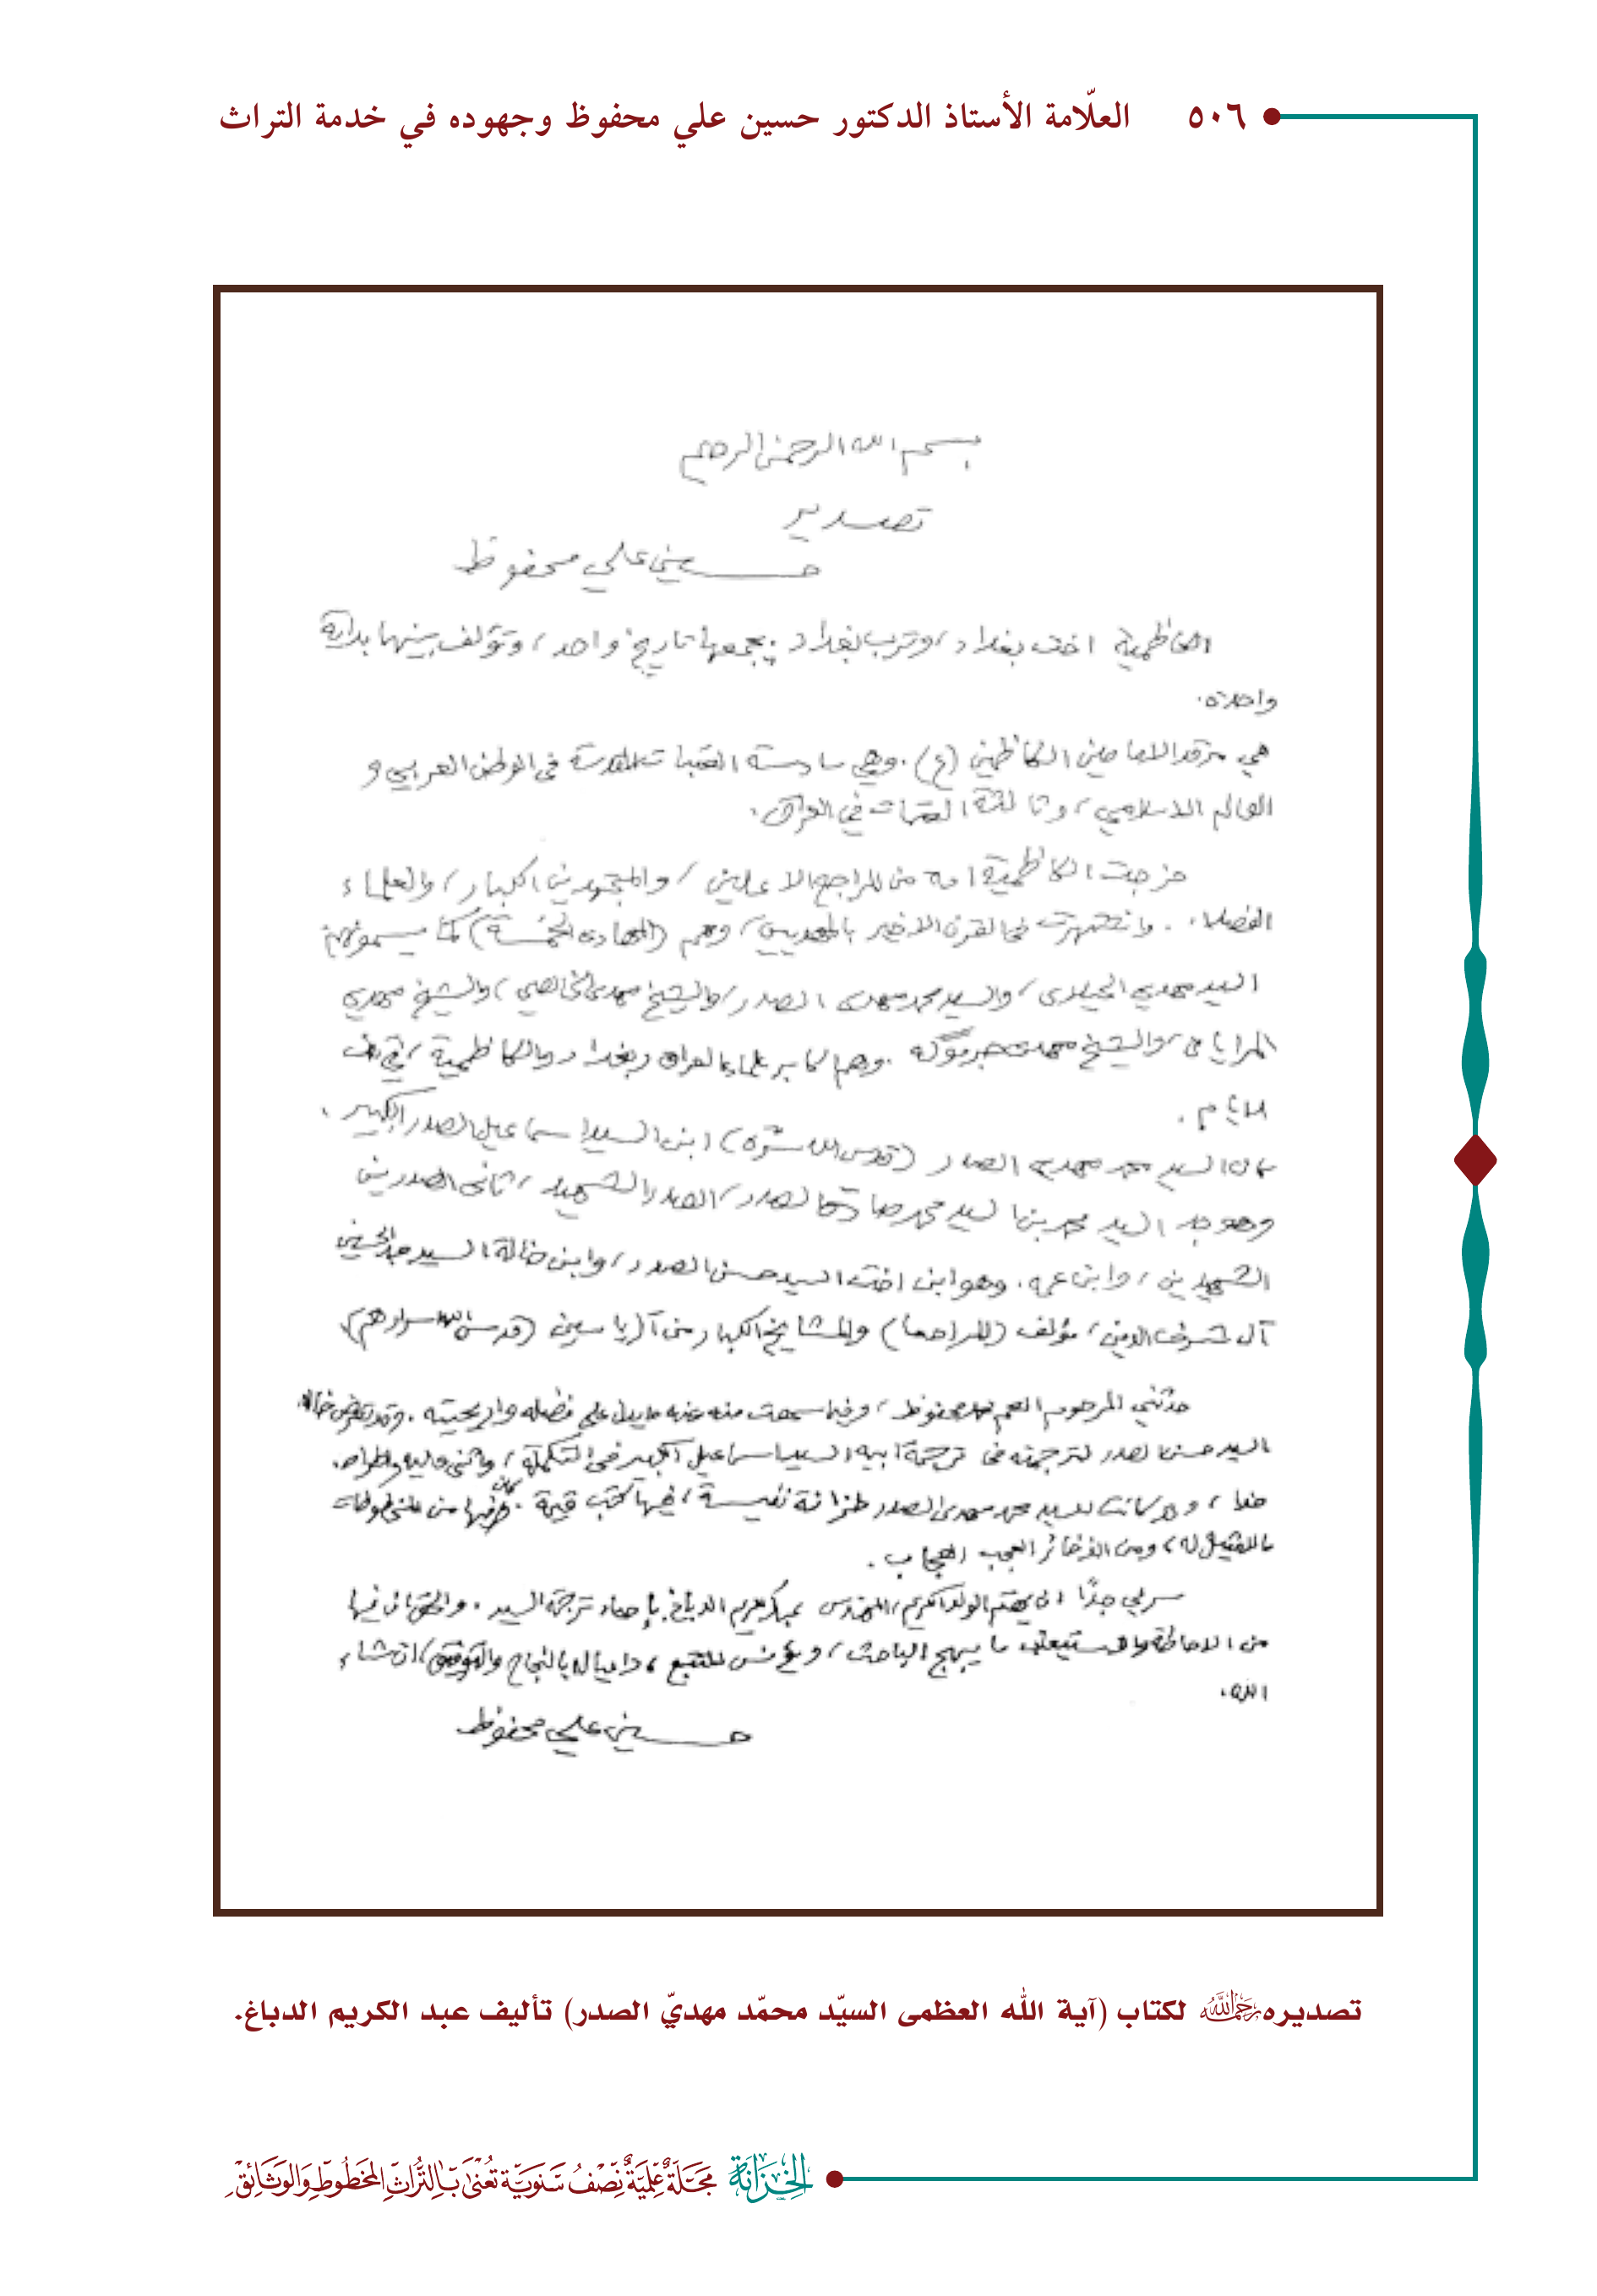 ٥٠٦ العلّامة الأستاذ الدكتور حسين علي محفوظ وجهوده في خدمة التراث
بسم الله الرحمن الرحيم
تصدير
حسين علي محفوظ
الكاظمية اخت بغداد، وترب بغداد يجمعها تاريخ واحد، وتؤلف بينهما بداية
واحدة.
هي مرقد الامامين الكاظمين (ع). وهي سادسة العتبات المقدسة في الوطن العربي و
العالم الاسلامي، وثالثة العتبات في العراق.
خرجت الكاظمية امة من المراجع الاعلين، والمجتهدين الكبار، والعلماء
الفضلاء. واشتهرت في القرن الاخير بالمهديين، وهم (المهادي الخمسة) كما يسمونهم
السيد مهدي الحيدري، والسيد محمد مهدي الصدر، والشيخ مهدي الخالصي، والشيخ مهدي
المراياتي، والشيخ مهدي جرموگه. وهم اكابر علماء العراق وبغداد والكاظمية، في تلك
الايام.
كان السيد محمد مهدي الصدر (قدس الله سره) ابن السيد اسماعيل الصدر الكبير.
وهو جد السيد محمد بن السيد محمد صادق الصدر، الصدر الشهيد، ثاني الصدرين
الشهيدين، وابن عمه. وهو ابن اخت السيد حسن الصدر، وابن خالة السيد عبد الحسين
آل شرف الدين، مؤلف (المراجعات) والمشايخ الكبار من آل ياسين (قدس الله اسرارهم)
حدثني المرحوم العم محمد محفوظ، وفيما سمعت منه عنه ما يدل على فضله واريحيته. وقد تعرض خاله
السيد حسن الصدر لترجمته في ترجمة ابيه السيد اسماعيل الكبير في التكملة، واثنى عليه واطراه.
هذا، وقد كانت للسيد محمد مهدي الصدر خزانة نفيسة، فيها كتب قيمة. كان فيها من المخطوطات
ما لا مثيل له، ومن الذخائر العجب العجاب.
سرني جدًا ان يهتم الولد الكريم، المهندس عبد الكريم الدباغ بإحياء ترجمة السيد. والحق ان فيها
من الاحاطة والاستيعاب ما يبهج الباحث، ويؤنس المتتبع، داعيا له بالنجاح والتوفيق، ان شاء
الله.
حسين علي محفوظ
تصديره رحمه الله لكتاب (آية الله العظمى السيّد محمّد مهديّ الصدر) تأليف عبد الكريم الدباغ.
الخِزَانَة مَجَلَّةٌ عِلْمِيَّةٌ نِصْفُ سَنَوِيَّة تُعْنَى بِالتُّرَاثِ المَخْطُوطِ وَالوَثَائِقِ